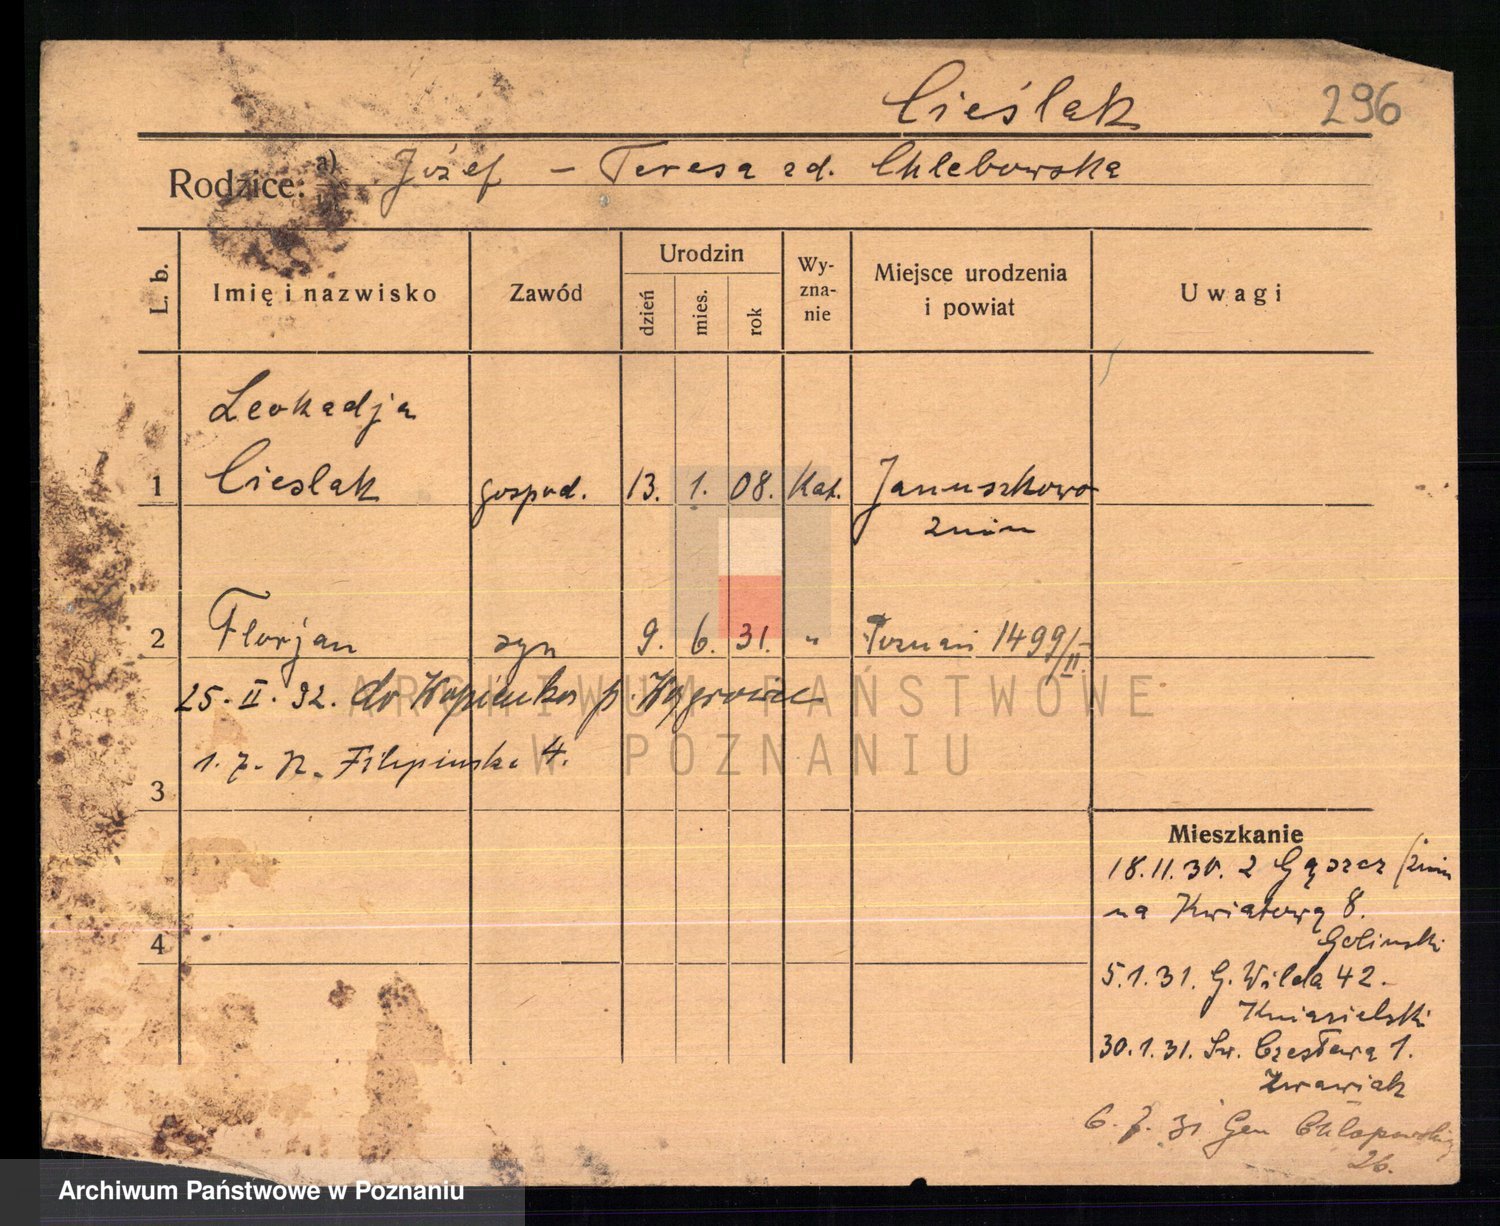 Cieślak
296
Rodzice: a) Józef – Teresa zd. Chlebowska
L. b.
Imię i nazwisko
Zawód
Urodzin
dzień
mies.
rok
Wy-
zna-
nie
Miejsce urodzenia
i powiat
Uwagi
Leokadja
1 Cieslak gospod. 13. 1. 08. Kat. Januszkowo
Żnin
2 Florjan syn 9. 6. 31. " Poznań 1499/II
25. II. 32. do p. Wągrowiec
1. 7. Filipińska 4.
3
Mieszkanie
18.11.30. z Gąszcz /Żnin
na Kwiatową 8.
Golinski
4
5.1.31. G. Wilda 42.
30.1.31. Św. Czesława 1.
6. 7. 31 Gen Chłapowskiego
26.
ARCHIWUM PAŃSTWOWE
W POZNANIU
Archiwum Państwowe w Poznaniu